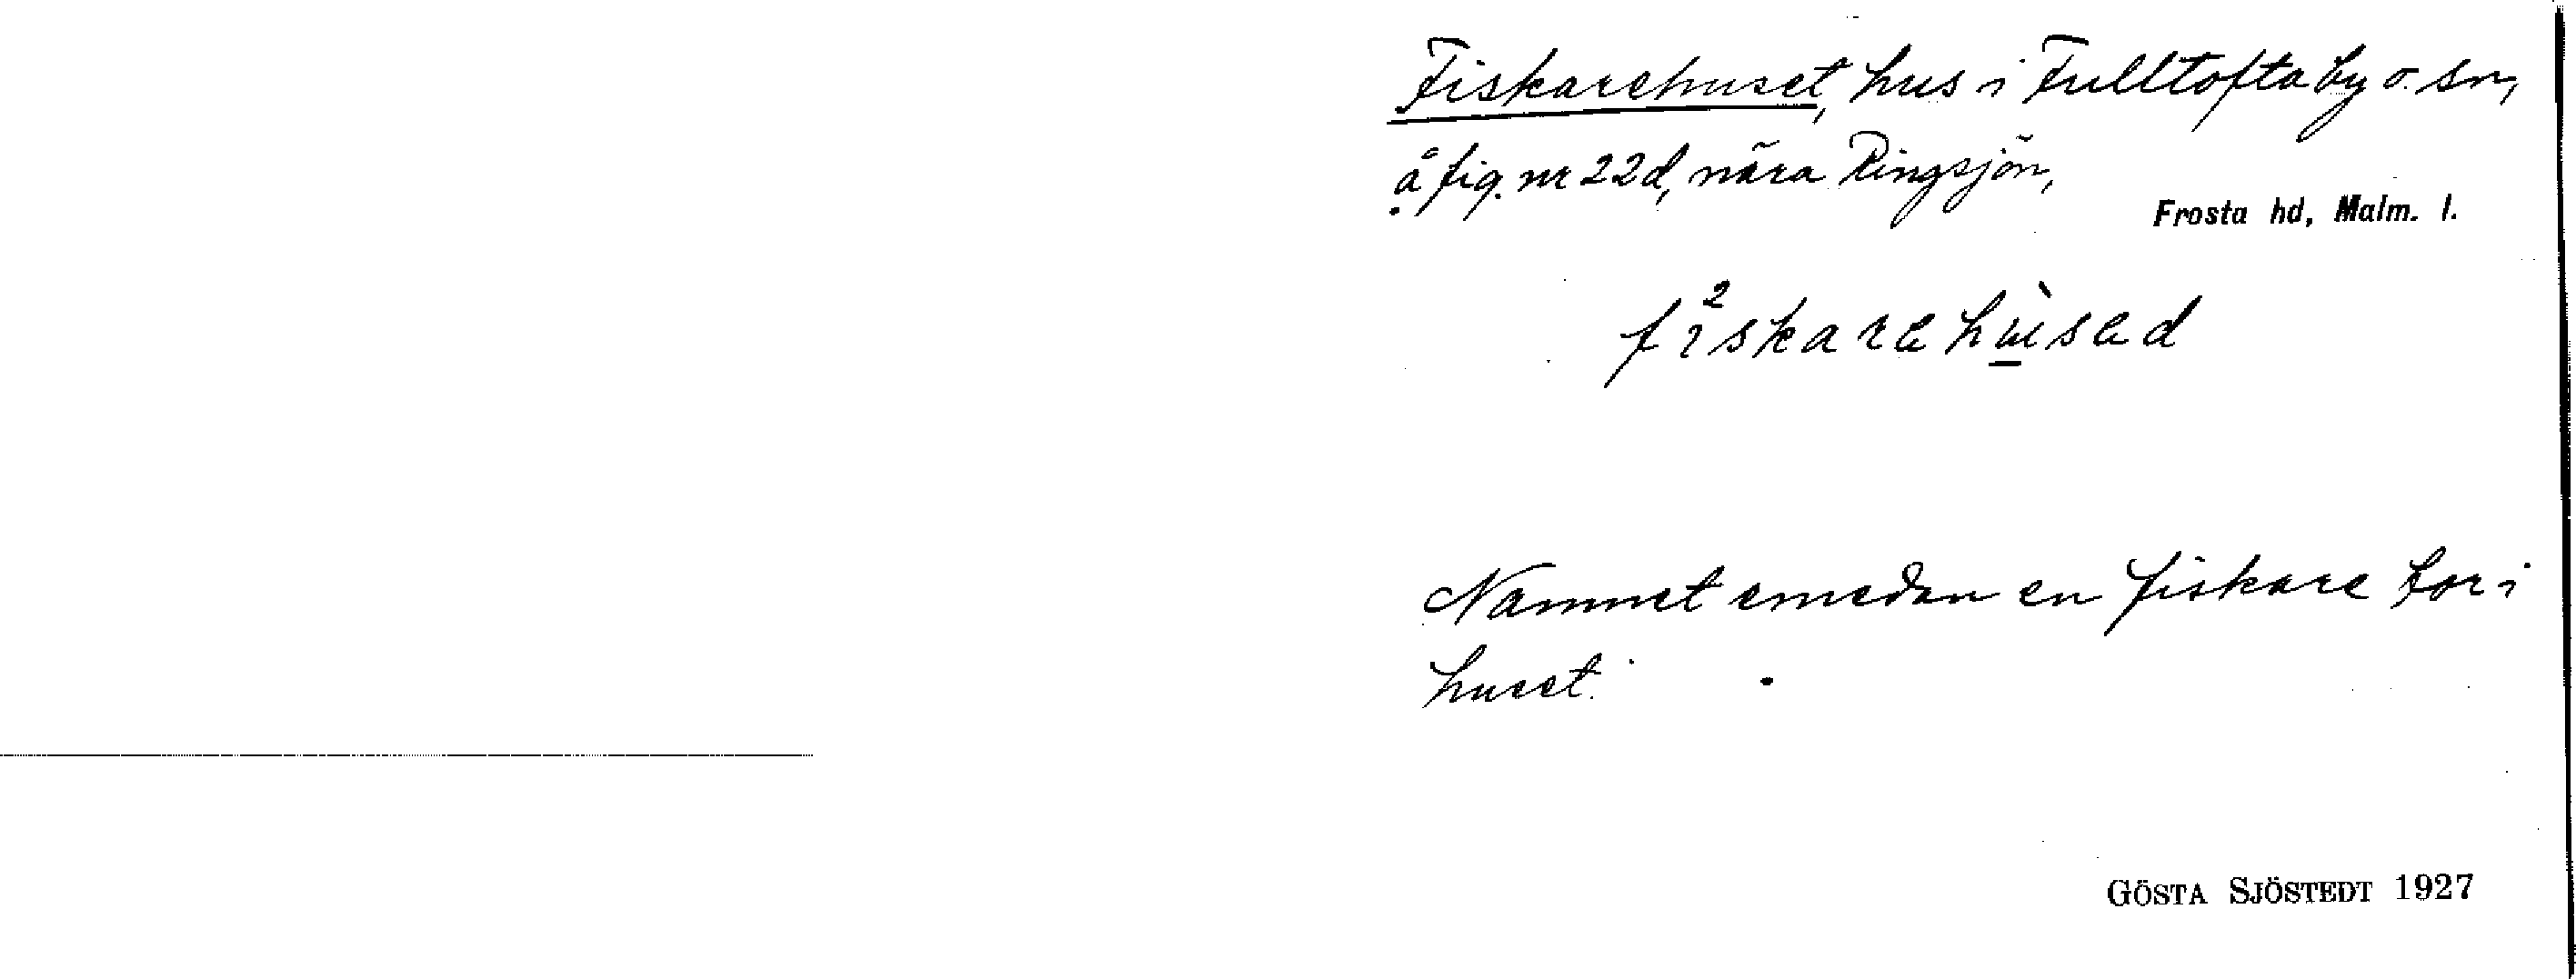 Fiskarehuset, hus i Fulltofta by o. sn,
å fig. nr 22d, nära Ringsjön,
Frosta hd, Malm. l.
Namnet emedan en fiskare bor i
huset.
GÖSTA SJÖSTEDT 1927